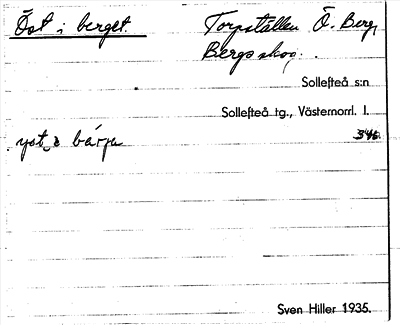 Öst i berget. Torpställen Ö. Berg,
Bergs skog.
Sollefteå s:n
Sollefteå tg., Västernorrl. l.
bárja
Sven Hiller 1935.